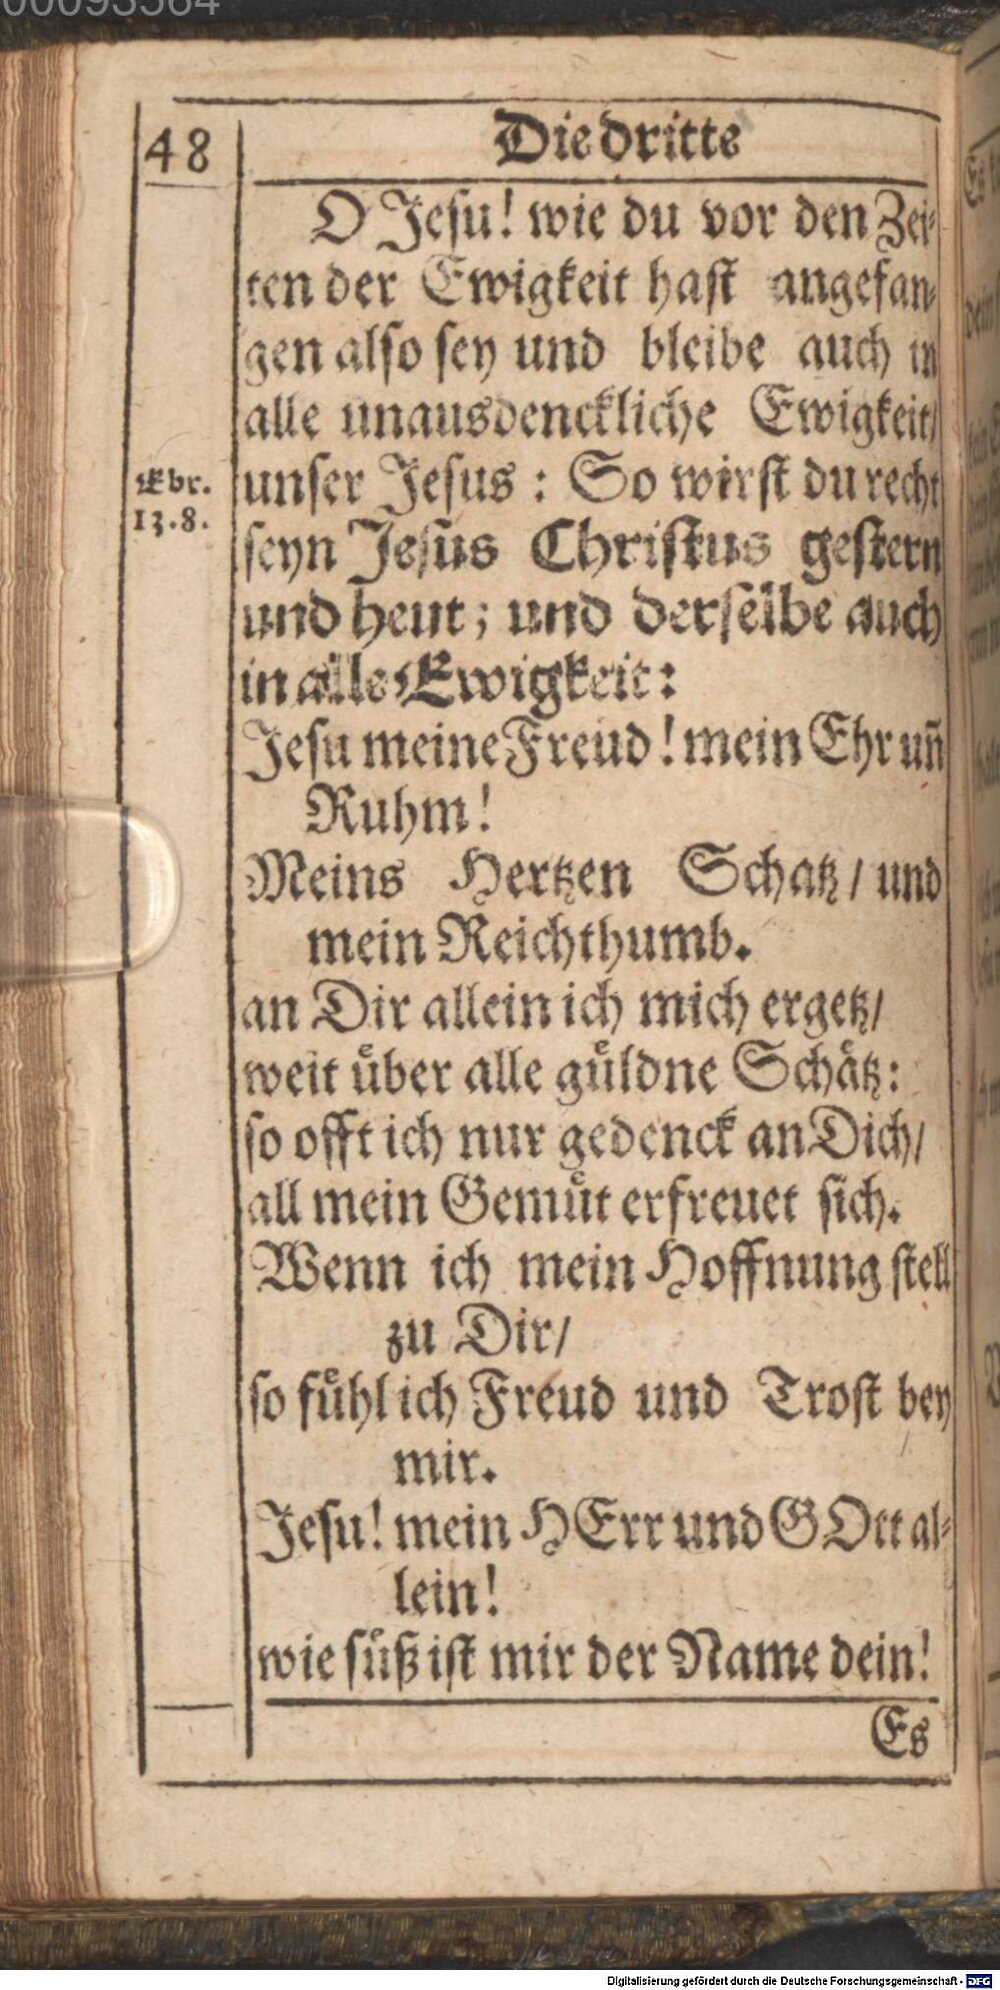 00093584
48
Die dritte
O Jeſu! wie du vor den Zei⸗
ten der Ewigkeit haſt angefan⸗
gen alſo ſey und bleibe auch in
alle unausdenckliche Ewigkeit/
Ebr.
13.8.
unſer Jeſus: So wirſt du recht
ſeyn Jeſus Chriſtus geſtern
und heut; und derſelbe auch
in alle Ewigkeit:
Jeſu meine Freud! mein Ehr uñ
Ruhm!
Meins Hertzen Schatz/ und
mein Reichthumb.
an Dir allein ich mich ergetz/
weit uͤber alle guͤldne Schaͤtz:
ſo offt ich nur gedenck an Dich/
all mein Gemuͤt erfreuet ſich.
Wenn ich mein Hoffnung ſtell
zu Dir/
ſo fuͤhl ich Freud und Troſt bey
mir.
Jeſu! mein HErr und GOtt al⸗
lein!
wie ſuͤß iſt mir der Name dein!
Es
Digitalisierung gefördert durch die Deutsche Forschungsgemeinschaft - DFG